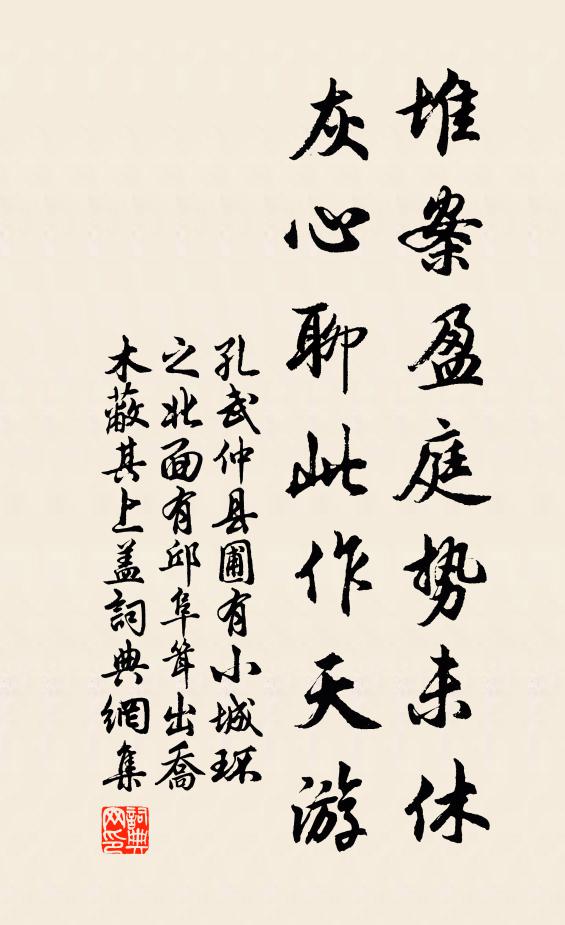 堆案盈庭势未休
灰心聊此作天游
孔武仲县圃有小城环
之北面有邱阜耸出乔
木蔽其上盖詞典網集
詞典网印